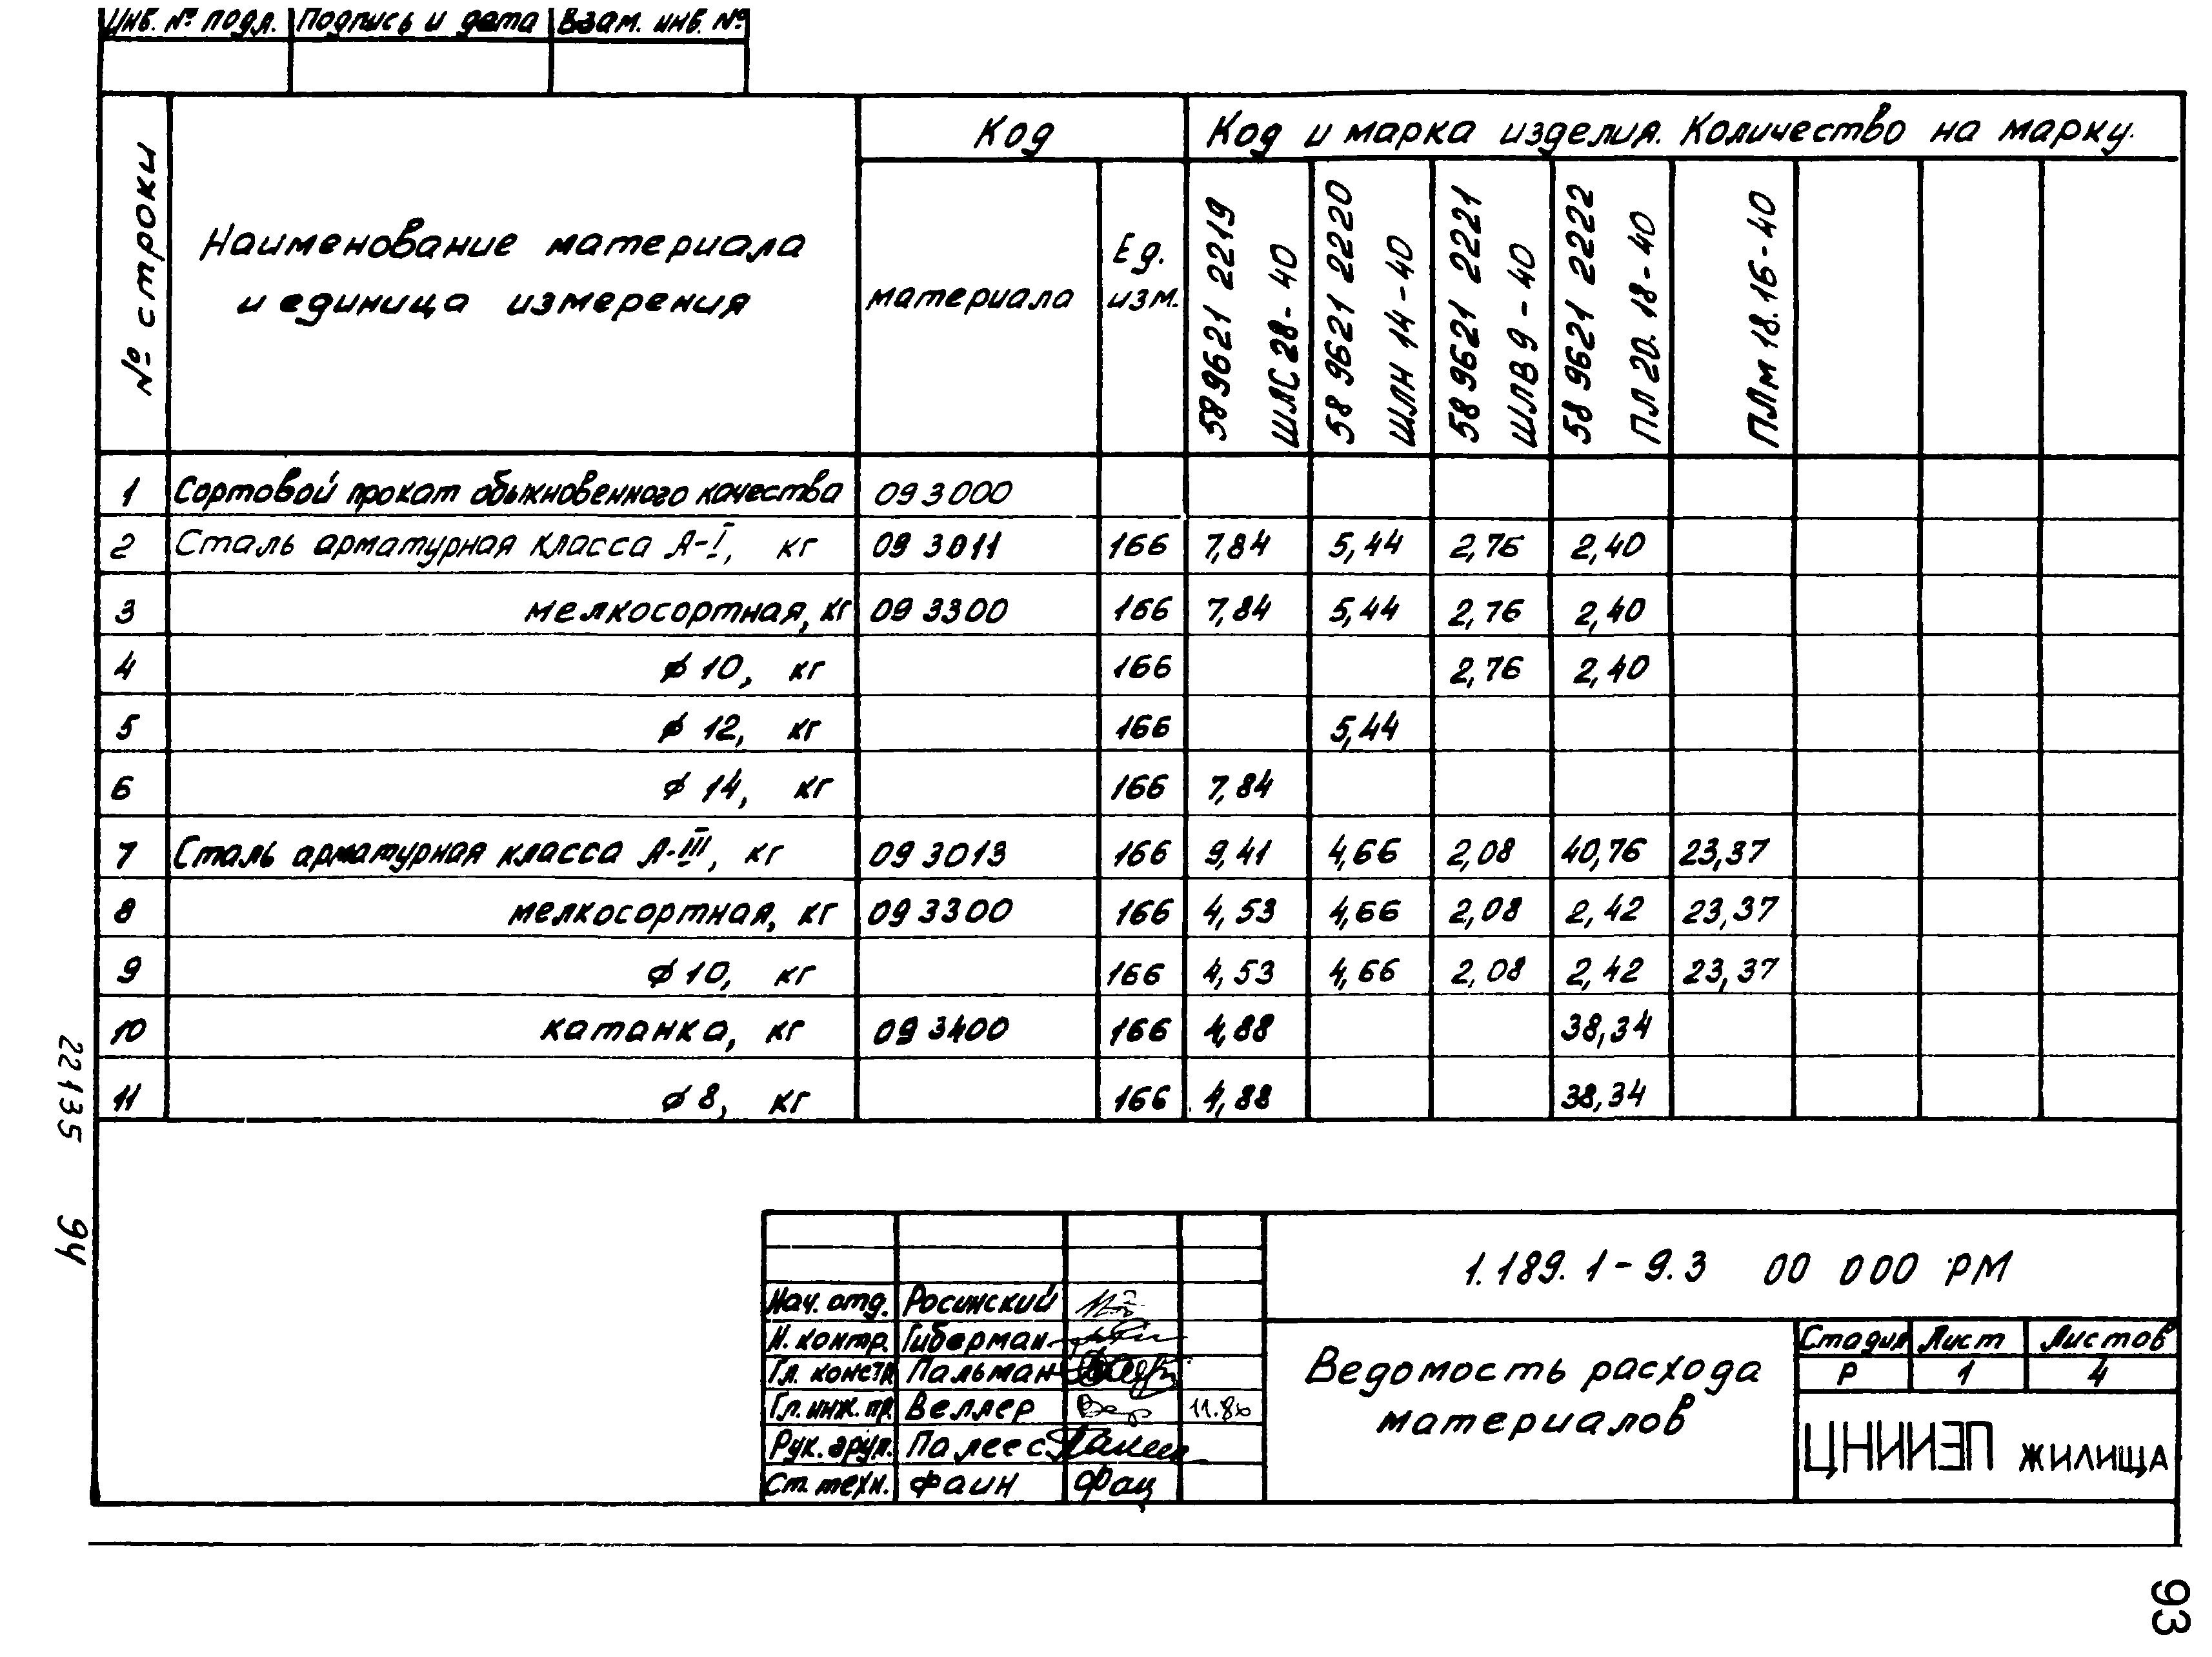 Инв. № подл. Подпись и дата Взам. инв. №
№ строки
Наименование материала
и единица измерения
Код
материала
Ед.
изм.
Код и марка изделия. Количество на марку.
58 9621 2219
ШЛС 28-40
58 9621 2220
ШЛН 14-40
58 9621 2221
ШЛВ 9-40
58 9621 2222
ПЛ 20.18-40
ПЛм 18.16-40
1 Сортовой прокат обыкновенного качества 09 3000
2 Сталь арматурная класса А-I, кг 09 3011 166 7,84 5,44 2,76 2,40
3 мелкосортная, кг 09 3300 166 7,84 5,44 2,76 2,40
4 ø 10, кг 166 2,76 2,40
5 ø 12, кг 166 5,44
6 ø 14, кг 166 7,84
7 Сталь арматурная класса А-III, кг 09 3013 166 9,41 4,66 2,08 40,76 23,37
8 мелкосортная, кг 09 3300 166 4,53 4,66 2,08 2,42 23,37
9 ø 10, кг 166 4,53 4,66 2,08 2,42 23,37
10 катанка, кг 09 3400 166 4,88 38,34
11 ø 8, кг 166 4,88 38,34
22135 94
1.189.1-9.3 00 000 РМ
Нач. отд. Росинский
Н. контр. Гиберман
Гл. констр. Пальман
Гл. инж. пр. Веллер 11.86
Рук. груп. Палеес
Ст. техн. Фаин
Ведомость расхода
материалов
Стадия Лист Листов
Р 1 4
ЦНИИЭП жилища
93